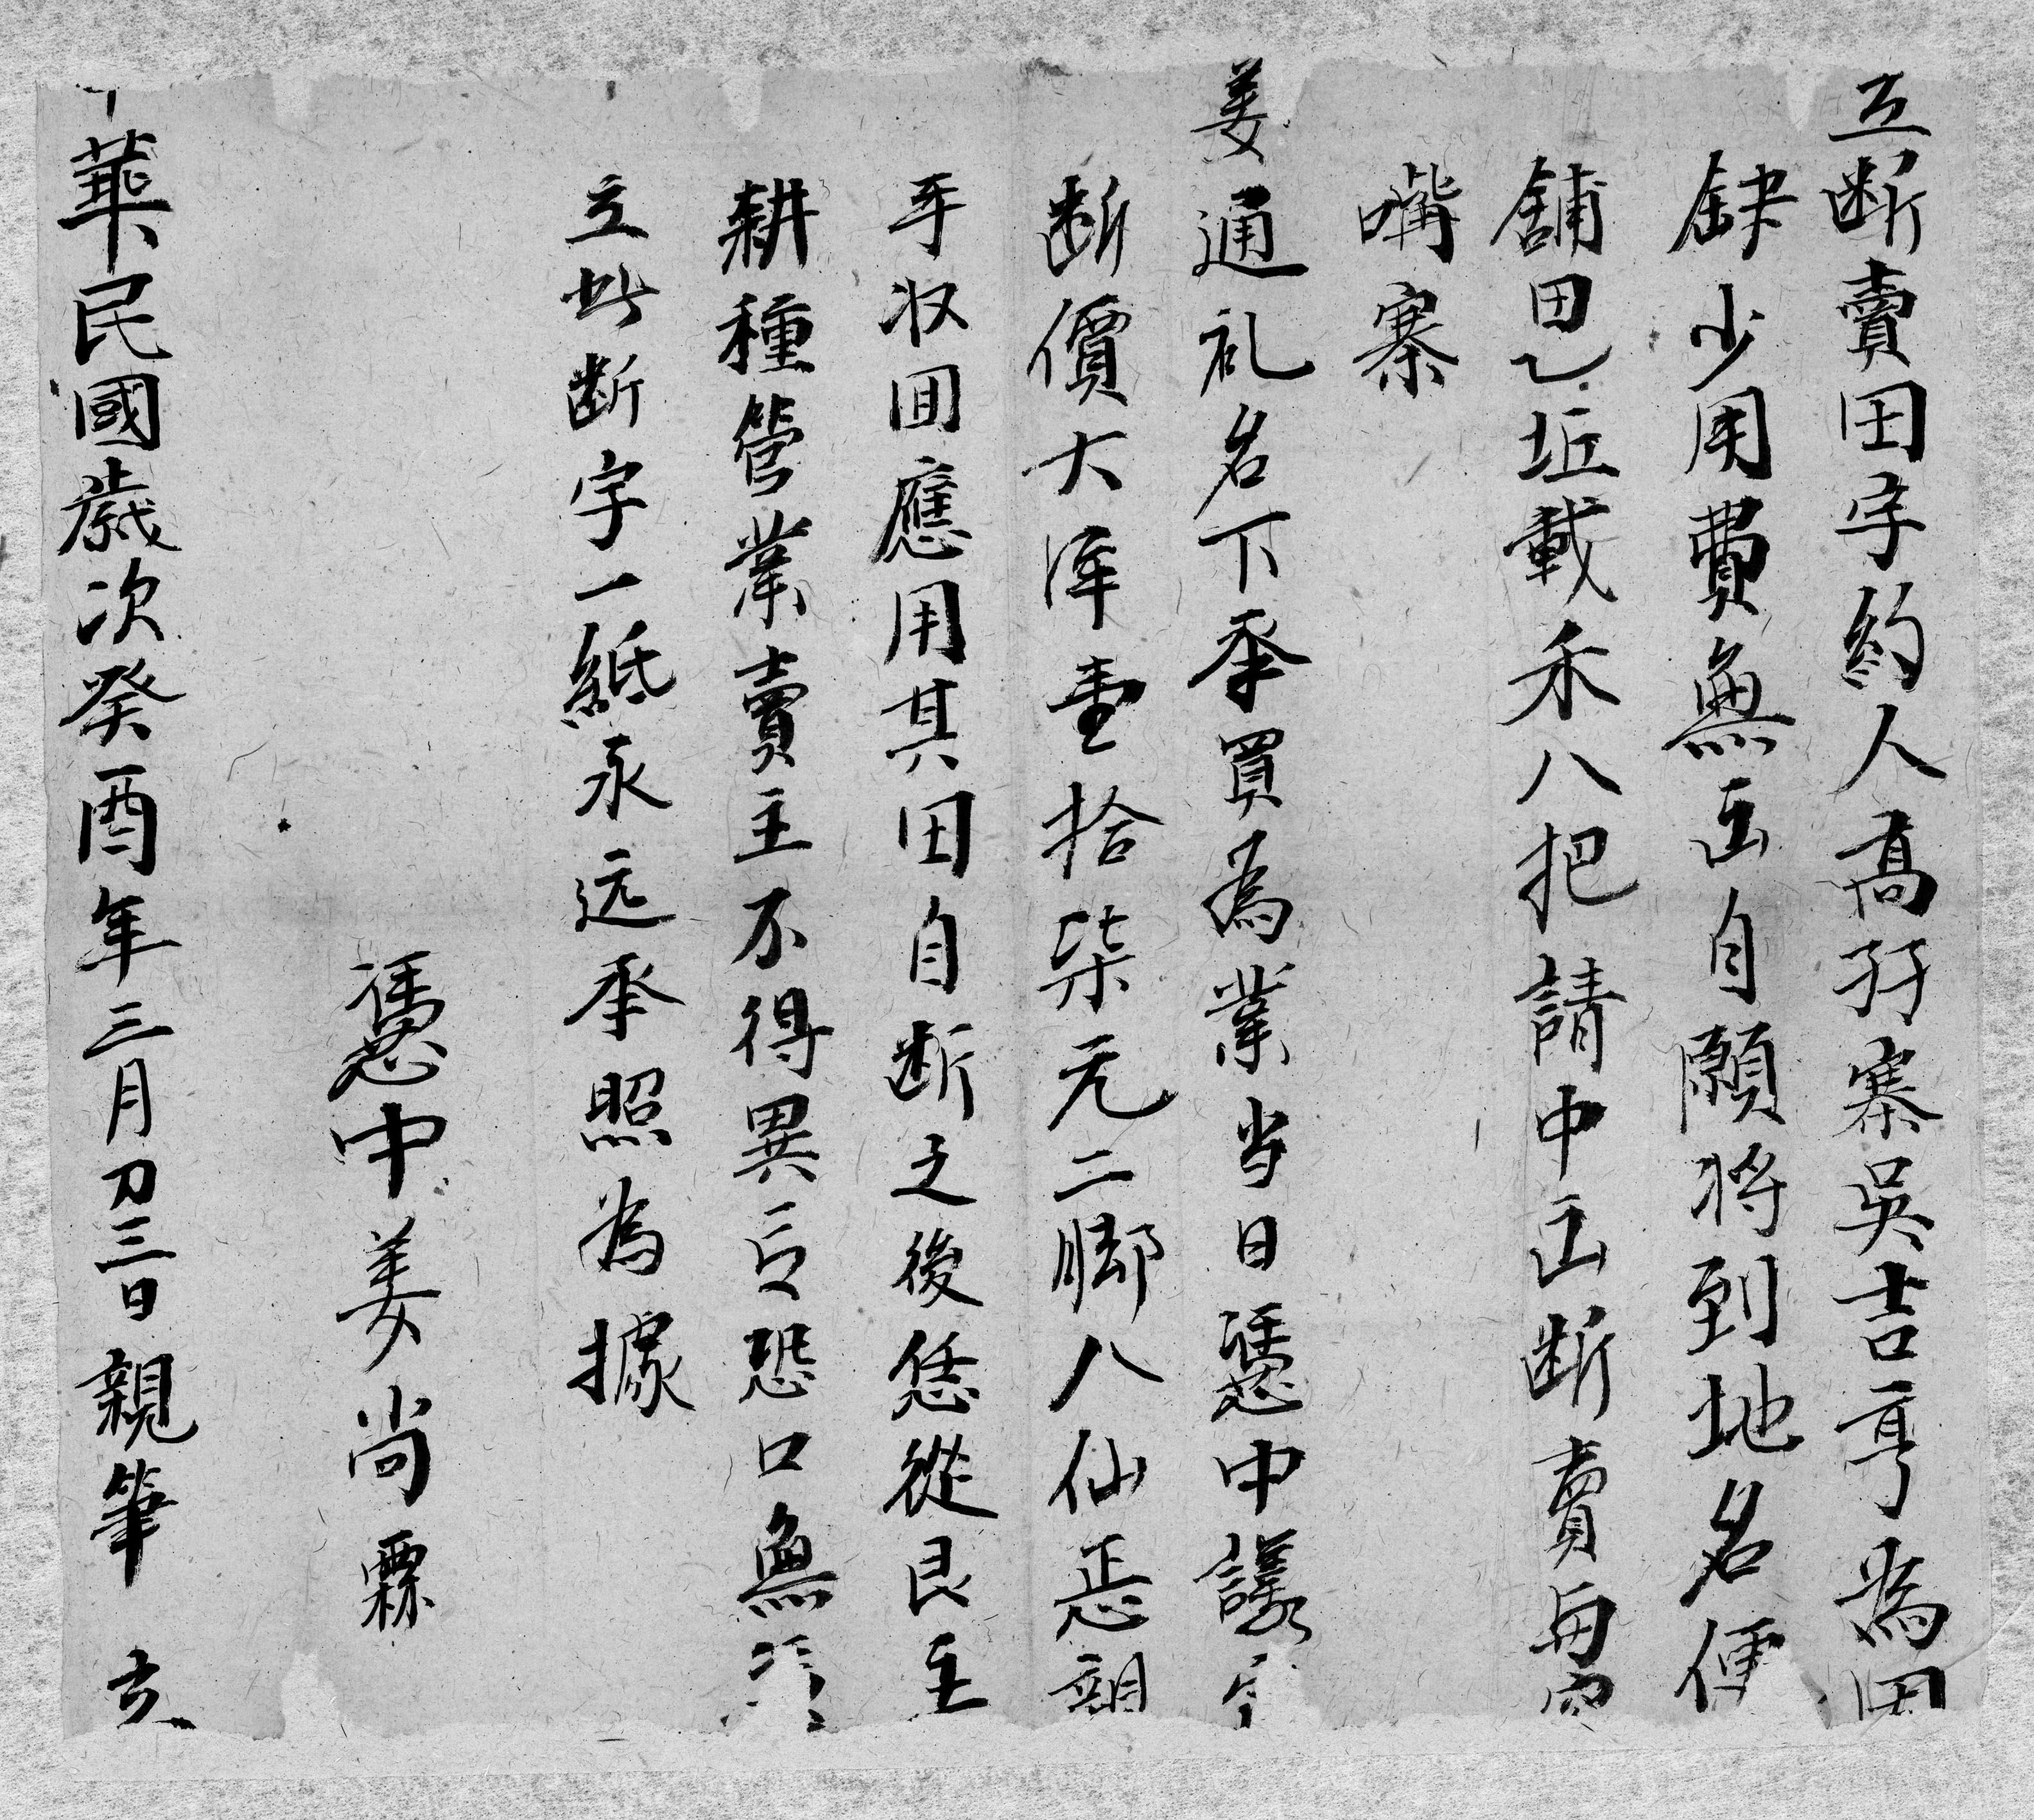 立断賣田字約人髙孖寨吳吉亨為因
缺少用費無出自願將到地名便
舖田乙坵載禾八把請中出断賣與
嘴寨
姜通礼名下承買為業当日憑中議定
断價大洋壹拾柒元二脚八仙恁親
手収囬應用其田自断之後恁從艮主
耕種管業賣主不得異言恐口無憑
立此断字一紙永远承照為據
憑中姜尚霖
中華民國歳次癸酉年三月初三日親筆 立